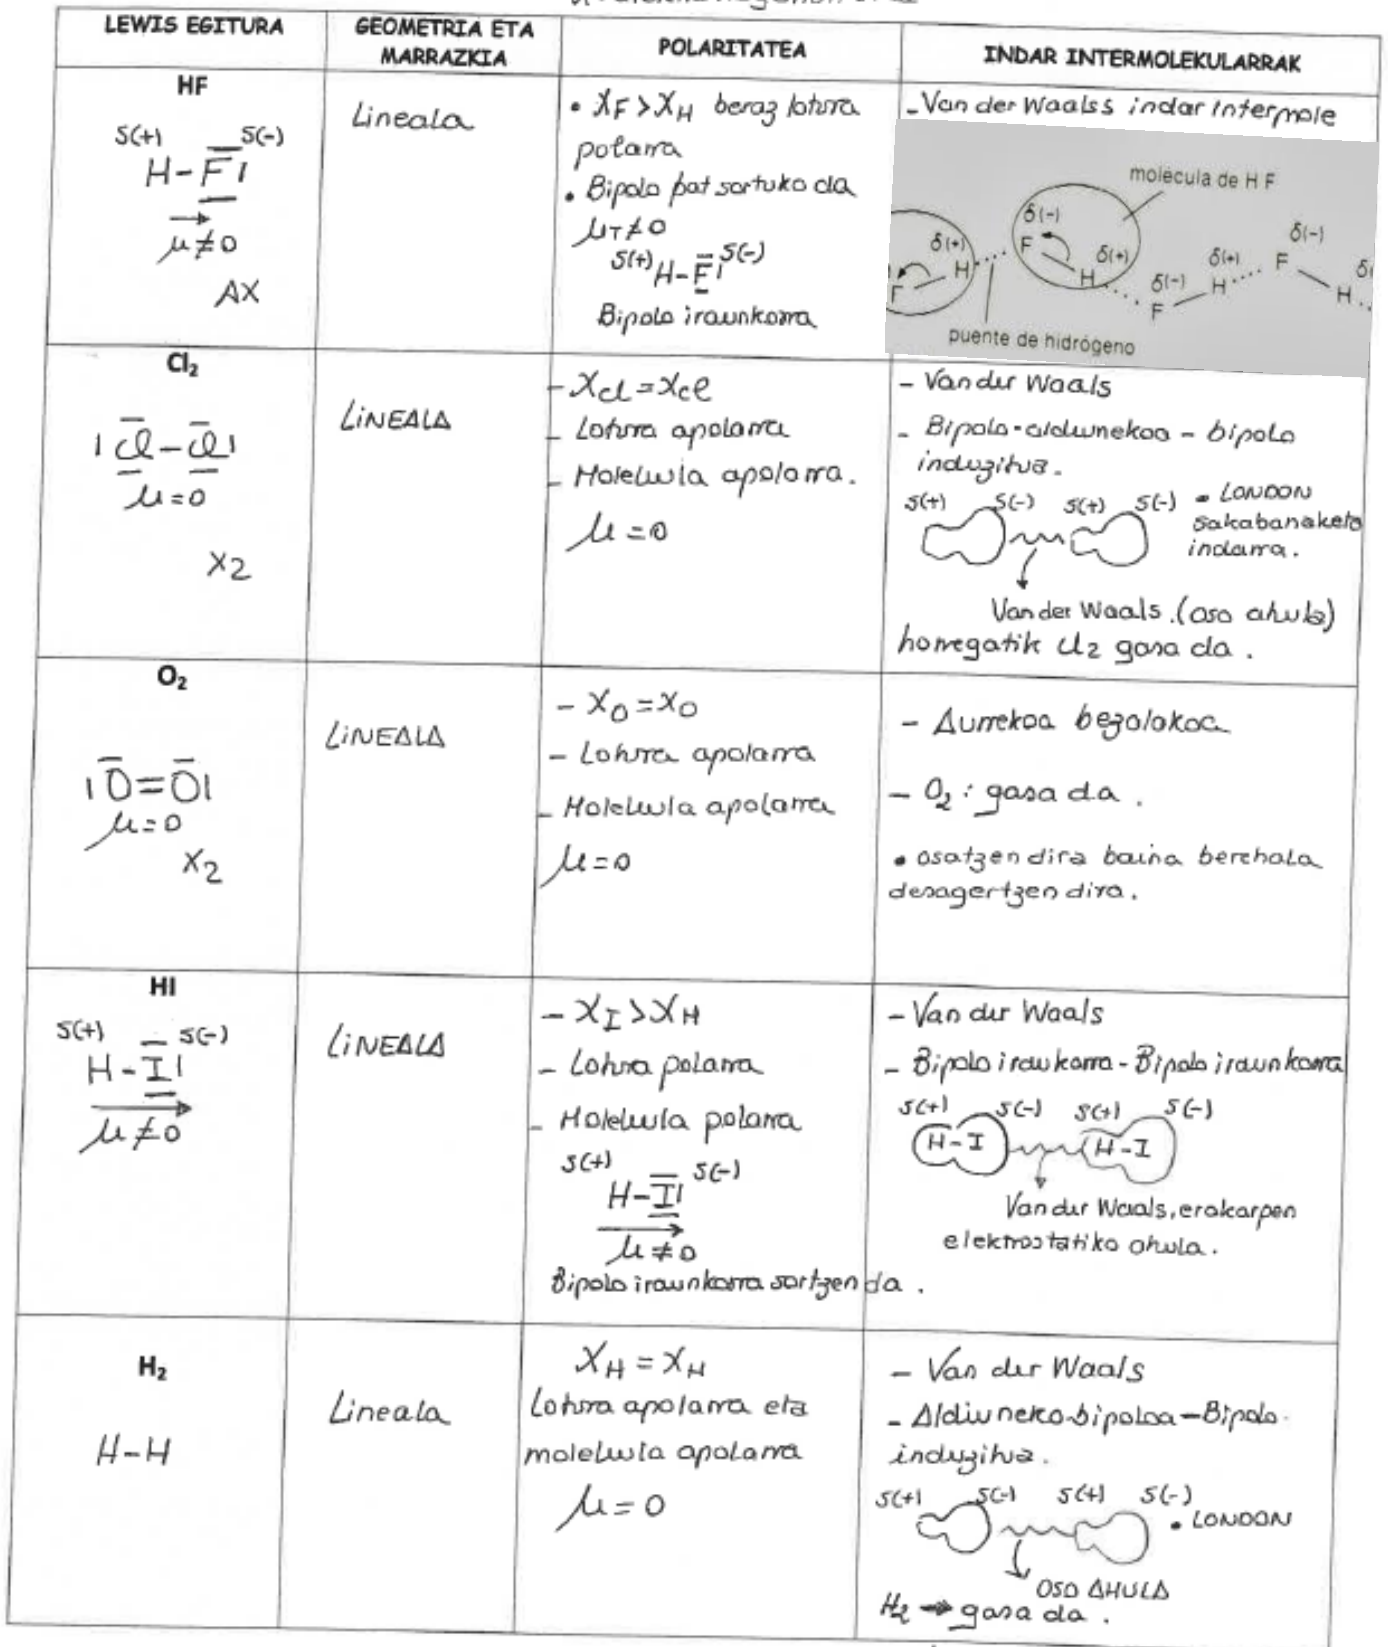 LEWIS EGITURA
GEOMETRIA ETA
MARRAZKIA
POLARITATEA
INDAR INTERMOLEKULARRAK
HF
δ(+) δ(-)
H-F
μ≠0
AX
Lineala
• XF > XH beraz lotura
polarra
• Bipolo bat sortuko da
μT≠0
δ(+) H-F δ(-)
Bipolo iraunkorra
- Van der Waalss indar intermole
molécula de H F
δ(-)
δ(+)
F
H
δ(+)
F
H
δ(-)
F
δ(+)
H
δ(-)
F
H
puente de hidrógeno
Cl₂
|Cl-Cl|
μ=0
X₂
LINEALA
- XCl = XCl
- Lotura apolarra
- Molekula apolarra.
μ=0
- Van der Waals
- Bipolo-aldiunekoa - bipolo
induzitua.
δ(+) δ(-) δ(+) δ(-) • LONDON
sakabanaketa
indarra.
Van der Waals. (oso ahula)
horregatik Cl₂ gasa da.
O₂
|O=O|
μ=0
X₂
LINEALA
- XO = XO
- Lotura apolarra
- Molekula apolarra
μ=0
- Aurrekoa bezalakoa
- O₂ : gasa da.
• osatzen dira baina berehala
desagertzen dira.
HI
δ(+) δ(-)
H-I|
μ≠0
LINEALA
- XI > XH
- Lotura polarra
- Molekula polarra
δ(+) δ(-)
H-I|
μ≠0
Bipolo iraunkorra sortzen da.
- Van der Waals
- Bipolo iraukorra - Bipolo iraunkorra
δ(+) δ(-) δ(+) δ(-)
H-I H-I
Van der Waals, erakarpen
elektrostatiko ahula.
H₂
H-H
Lineala
XH = XH
Lotura apolarra eta
molekula apolarra
μ=0
- Van der Waals
- Aldiuneko-bipoloa - Bipolo
induzitua.
δ(+) δ(-) δ(+) δ(-)
• LONDON
OSO AHULA
H₂ → gasa da.